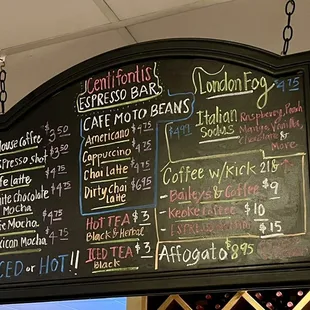 House Coffee $3.50
Espresso Shot $3
Cafe latte $4.75
White Chocolate $4.75
Mocha
Mocha $4.75
Mexican Mocha $4
ICED or HOT!!
JCentifontis
ESPRESSO BAR
CAFE MOTO BEANS
Americano $4
Cappuccino $4.75
Chai latte $4.75
Dirty chai $6
latte
HOT TEA $3
Black & Herbal
ICED TEA $3
Black
London Fog $4.75
Italian
Sodas
Raspberry, Peach
Mango, Vanilla,
& More
Coffee w/Kick 21&+
Baileys & Coffee $9
Keoke Coffee $10
$15
Affogato $8.95